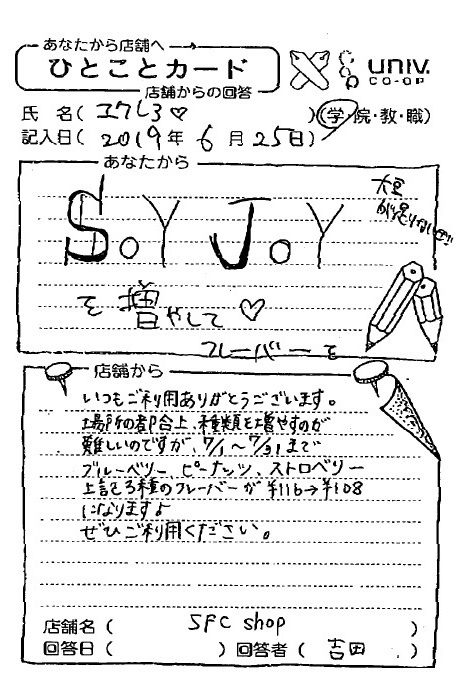 あなたから店舗へ→
ひとことカード
店舗からの回答
univ.
CO-OP
氏 名( ユクレヨ♡ )(学・院・教・職)
記入日( 2019年 6月 25日)
あなたから
SoY JoY
大豆
が足りないぜ!!
を増やして♡
フレーバーを
店舗から
いつもご利用ありがとうございます。
場所の都合上、種類を増やすのが
難しいのですが、7/1〜7/31まで
ブルーベリー、ピーナッツ、ストロベリー
上記3種のフレーバーが¥116→¥108
になります♪
ぜひご利用ください。
店舗名( SFC shop )
回答日( )回答者( 吉田 )